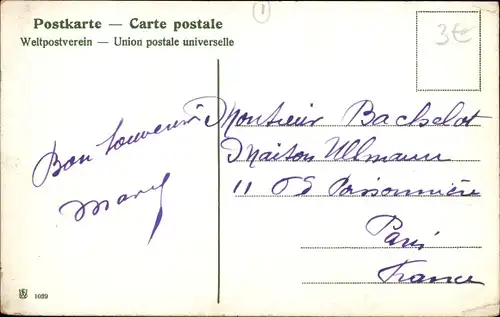 Postkarte — Carte postale
Weltpostverein — Union postale universelle
1
3€
Bon souvenir
Mary
Monsieur Bachelot
Maison Ullmann
11 Poissonnière
Paris
France
1039